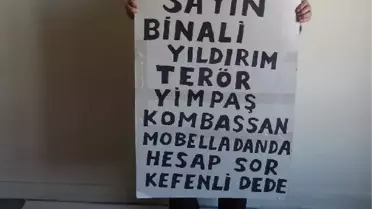 SAYIN
BİNALİ
YILDIRIM
TERÖR
YİMPAŞ
KOMBASSAN
MOBELLADANDA
HESAP SOR
KEFENLİ DEDE